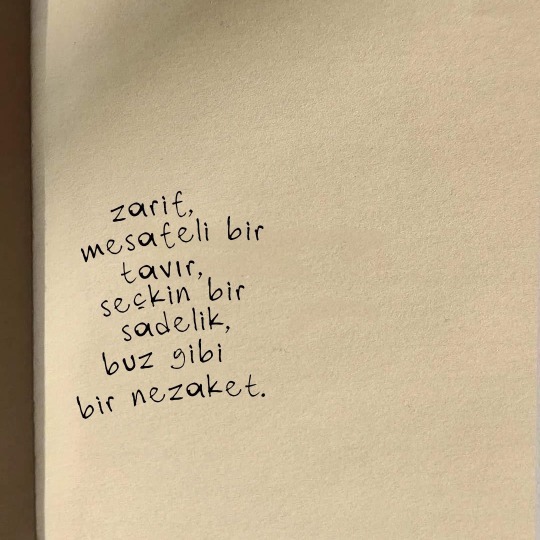 zarif,
mesafeli bir
tavır,
seçkin bir
sadelik,
buz gibi
bir nezaket.